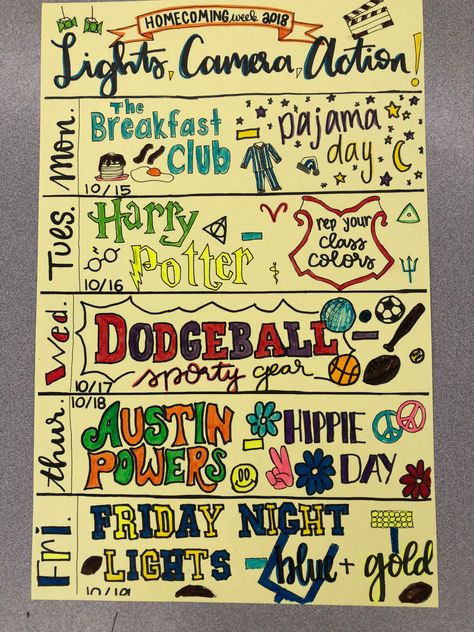 HOMECOMING week 2018
Lights, Camera, Action!
Mon.
The
Breakfast
Club
- pajama
day
10/15
Tues.
Harry
Potter
- rep your
class
colors
10/16
Wed.
DODGEBALL -
sporty gear
10/17
thur.
10/18
AUSTIN
POWERS
- HIPPIE
DAY
Fri.
FRIDAY NIGHT
LIGHTS - blue + gold
10/19